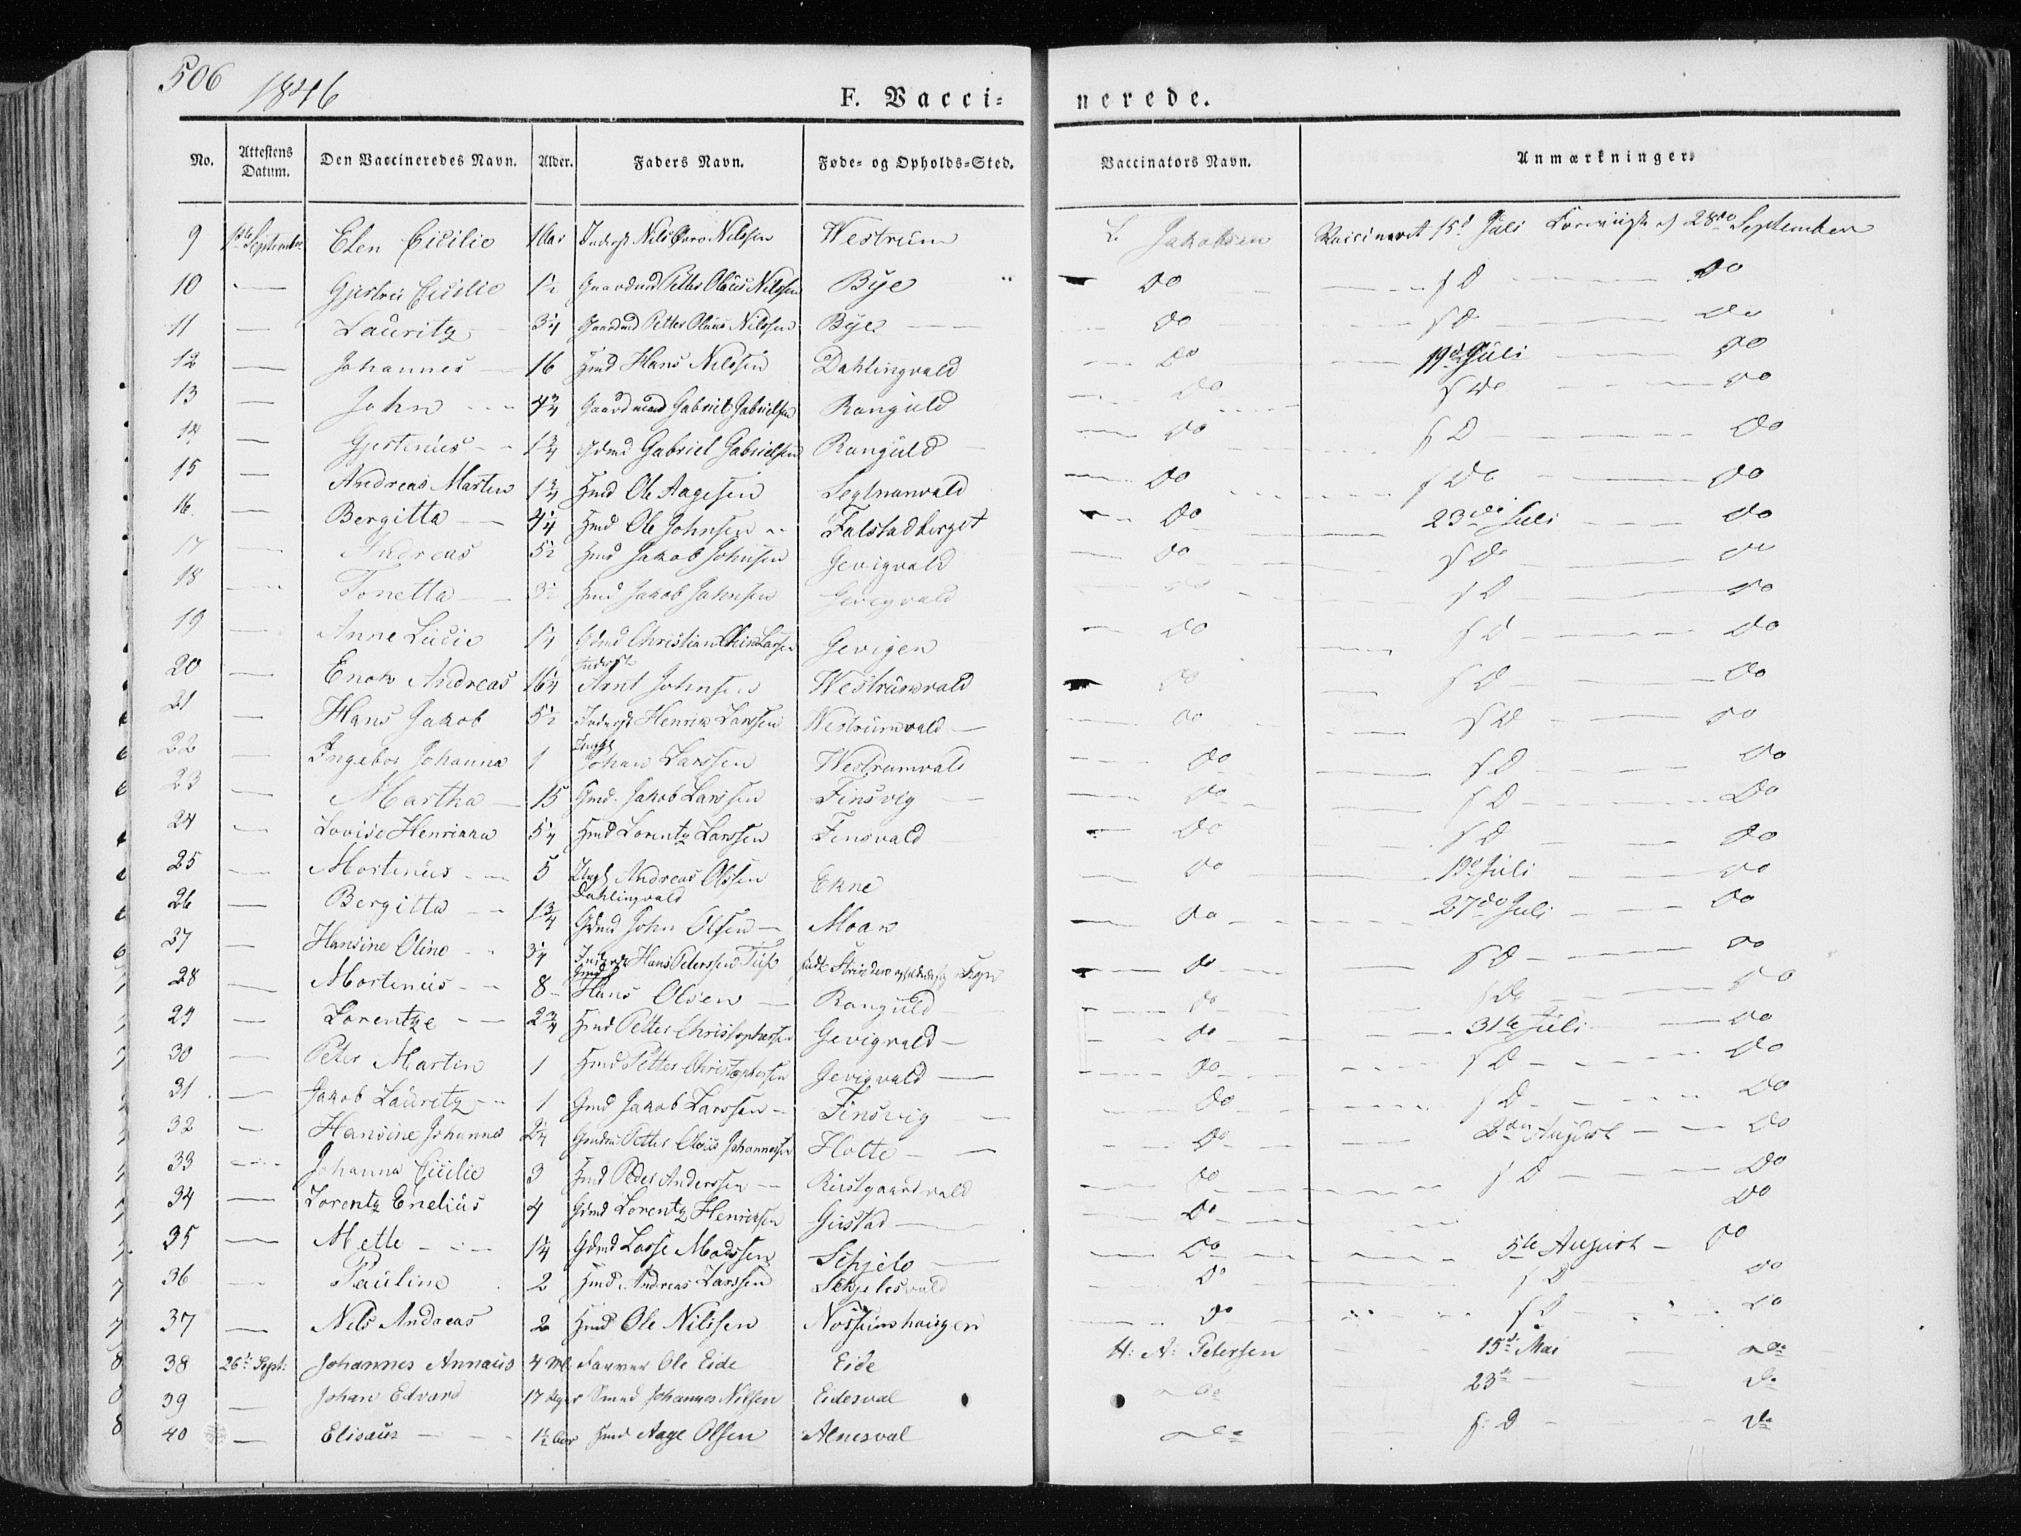 506 1846
F. Vacci= nerede.
No. Attestens Datum. Den Vaccineredes Navn. Alder. Faders Navn. Føde- og Opholds=Sted. Vaccinators Navn. Anmærkninger.
9 September Elen Cicilie 1 Aar Nils Nilssen Westrum L. Jakobsen Vaccineret 15d Juli 28de September
10 — Cicilie 1½ Gaardmd Petter Olaus Nilssen Bye Do f D Do
11 — Lauritz 3¼ Gaardmd Petter Olaus Nilssen Bye Do f D Do
12 — Johannes 16 Hmd Hans Nilssen Dahlingvald Do 19d Juli Do
13 John 4¾ Gaardmand Gabriel Gabrielsen Ranguld Do f Do Do
14 — Gjertinus 1¾ Gdmd Gabriel Gabrielsen Ranguld Do f D Do
15 — Andreas Martin 1¾ Hmd Ole Aagesen Do f Do Do
16 — Bergitta 4¼ Hmd Ole Johnsen Falstadberget Do 23de Juli Do
17 — Andreas 5½ Hmd Jakob Johnsen Gevigvald Do f Do Do
18 — Tonetta 3½ Hmd Jakob Johnsen Gevigvald Do f D Do
19 — Anne Lucie 1¼ Gdmd Christian Larsen Gevigen Do f D Do
20 — Enok Andreas 16¼ Inderst Arnt Johnsen Westrumvald Do f D Do
21 — Hans Jakob 5½ Inderst Henrik Larssen Westrumvald Do f D Do
22 — Ingebor Johanna 1 Johan Larssen Westrumvald Do f D Do
23 — Martha 15 Gmd. Jakob Larssen Finsvig Do f D Do
24 — Lovise Henrikka 5¼ Hmd Lorentz Larssen Finsvald Do f D Do
25 — Martinus 5 Andreas Olssen Dahlingvald Ekne Do 19d Juli Do
26 — Bergitta 1¾ Gdmd John Olsen Moan Do 27de Juli Do
27 — Hansine Oline 3¼ Inderst Hans Peterssen Do f D Do
28 — Martinus 8 Gmd Hans Olsen Ranguld Do f Do Do
29 — Lorentze 2¾ Hmd Petter Christophersen Gevigvald Do 31te Juli Do
30 — Peter Martin 1 Hmd Petter Christophersen Gevigvald Do f D Do
31 — Jakob Lauritz 1 Gmd Jakob Larssen Finsvig Do f D Do
32 — Hansine Johanna 2¼ Petter Olaus Johannessen Holte Do 2den August Do
33 — Johanna Cicilie 3 Hmd Peder Anderssen Do f D Do
34 — Lorentz Enelius 4 Gdmd Lorentz Henrikssen Gustad Do Do
35 — Mette 1¼ Gdmd Lasse Madssen Schjelo Do 5te August Do
36 — Pauline 2 Hmd Andreas Larssen Do f D Do
37 — Nils Andreas 2 Hmd Ole Nilssen Nossumhaugen Do f D Do
38 26d Sept: Johannes Annæus 4 Md Ole Eide Eide H: A: Petersen 15d Mai Do
39 — Johan Edvard 17 Uger Smed Johannes Nilsen Eidesval Do 23d Do
40 — Elisæus 1½ Aar Hmd Aage Olsen Alnesval Do f: D Do